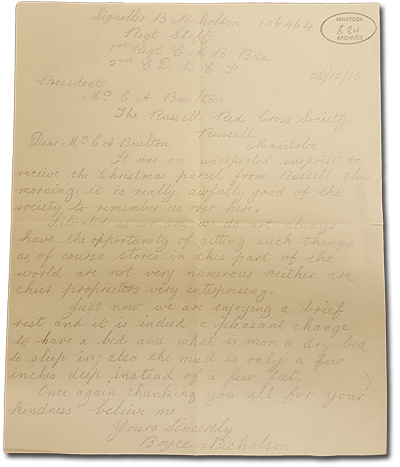 Signaller B Nicholson 106464
Regt Staff
1st Regt C M R Bde
2nd C D B E F
MANITOBA
ARCHIVES
28/12/15
President
Mrs C A Boulton
The Russell Red Cross Society
Russell
Manitoba
Dear Mrs C A Boulton
It was an unexpected surprise to
receive the Christmas parcel from Russell this
morning, it is really awfully good of the
society to remember us over here.
Situated as we are, we do not always
have the opportunity of getting such things
as of course stores in this part of the
world are not very numerous neither are
their proprietors very enterprising.
Just now we are enjoying a brief
rest and it is indeed a pleasant change
to have a bed and what is more a dry bed
to sleep in, also the mud is only a few
inches deep instead of a few feet.
Once again thanking you all for your
kindness believe me
Yours Sincerely
Boyce Nicholson